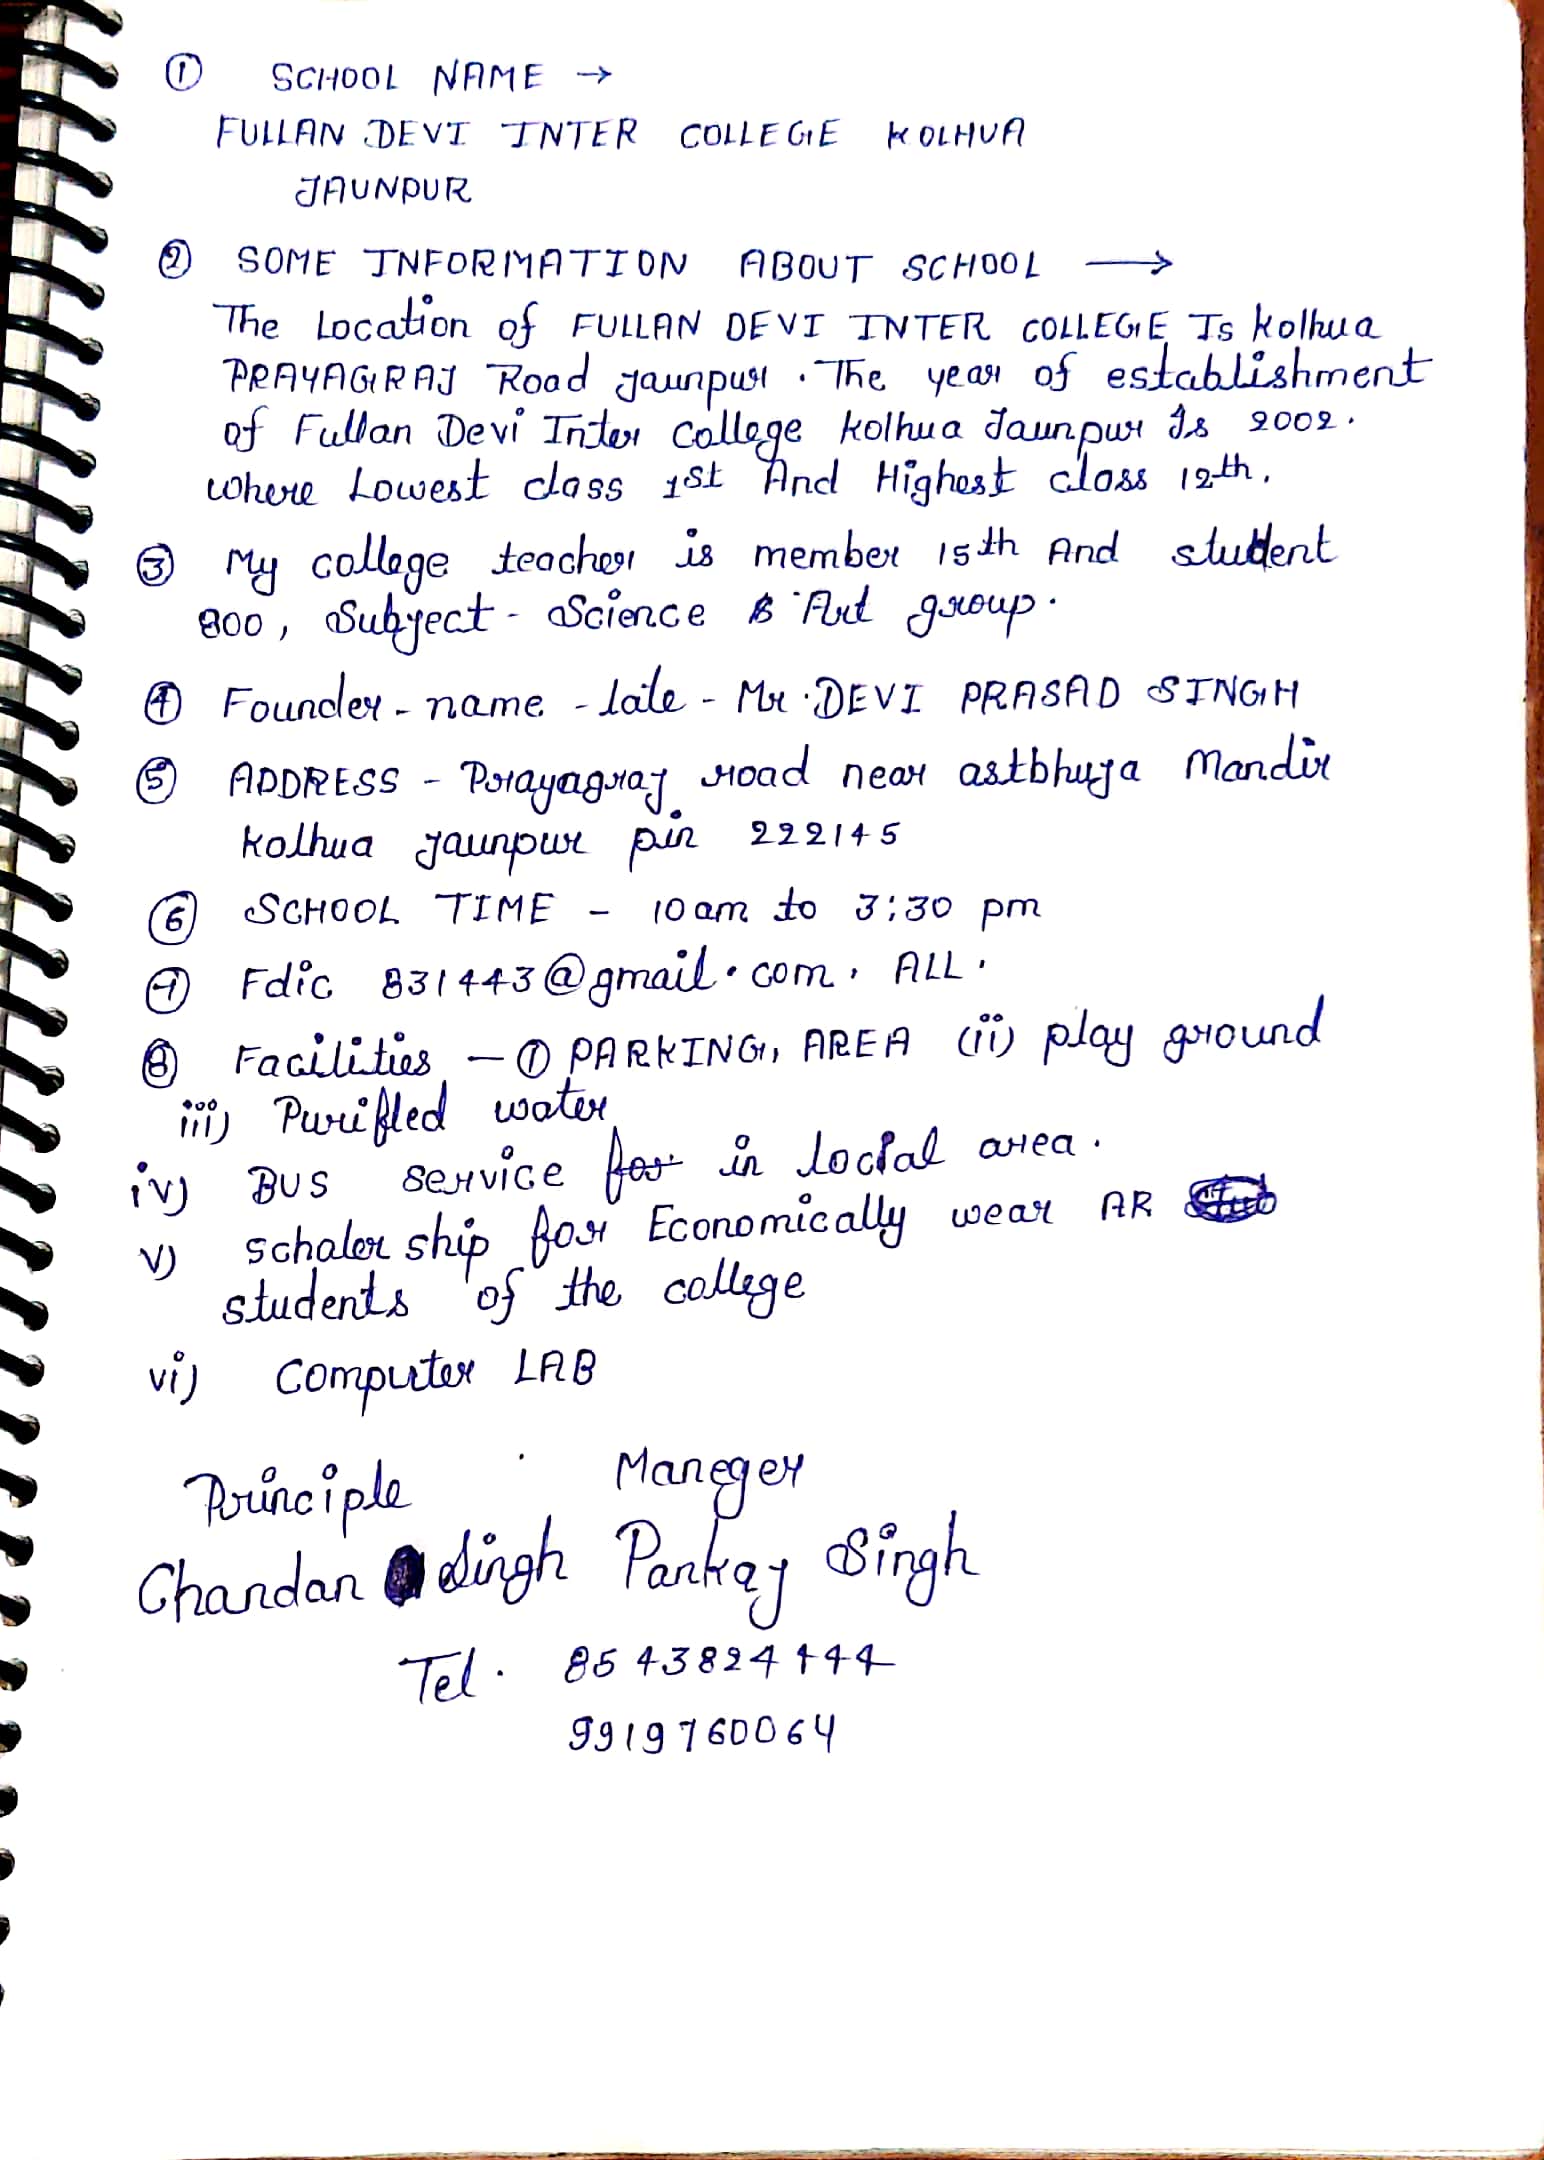 ① SCHOOL NAME →
FULLAN DEVI INTER COLLEGE KOLHUA
JAUNPUR
② SOME INFORMATION ABOUT SCHOOL →
The Location of FULLAN DEVI INTER COLLEGE Is kolhua
PRAYAGRAJ Road Jaunpur . The year of establishment
of Fullan Devi Inter College kolhua Jaunpur Is 2002.
where Lowest class 1st And Highest class 12th.
③ My college teacher is member 15th And student
800, Subject - Science & Art group.
④ Founder - name - late - Mr . DEVI PRASAD SINGH
⑤ ADDRESS - Prayagraj road near astbhuja Mandir
kolhua jaunpur pin 222145
⑥ SCHOOL TIME - 10 am to 3:30 pm
⑦ Fdic 831443@gmail.com. ALL.
⑧ Facilities - ① PARKING, AREA (ii) play ground
iii) Purifled water
iv) BUS service for in local area.
v) schaler ship for Economically wear AR
students of the college
vi) Computer LAB
Principle Maneger
Chandan Singh Pankaj Singh
Tel. 8543824444
9919760064